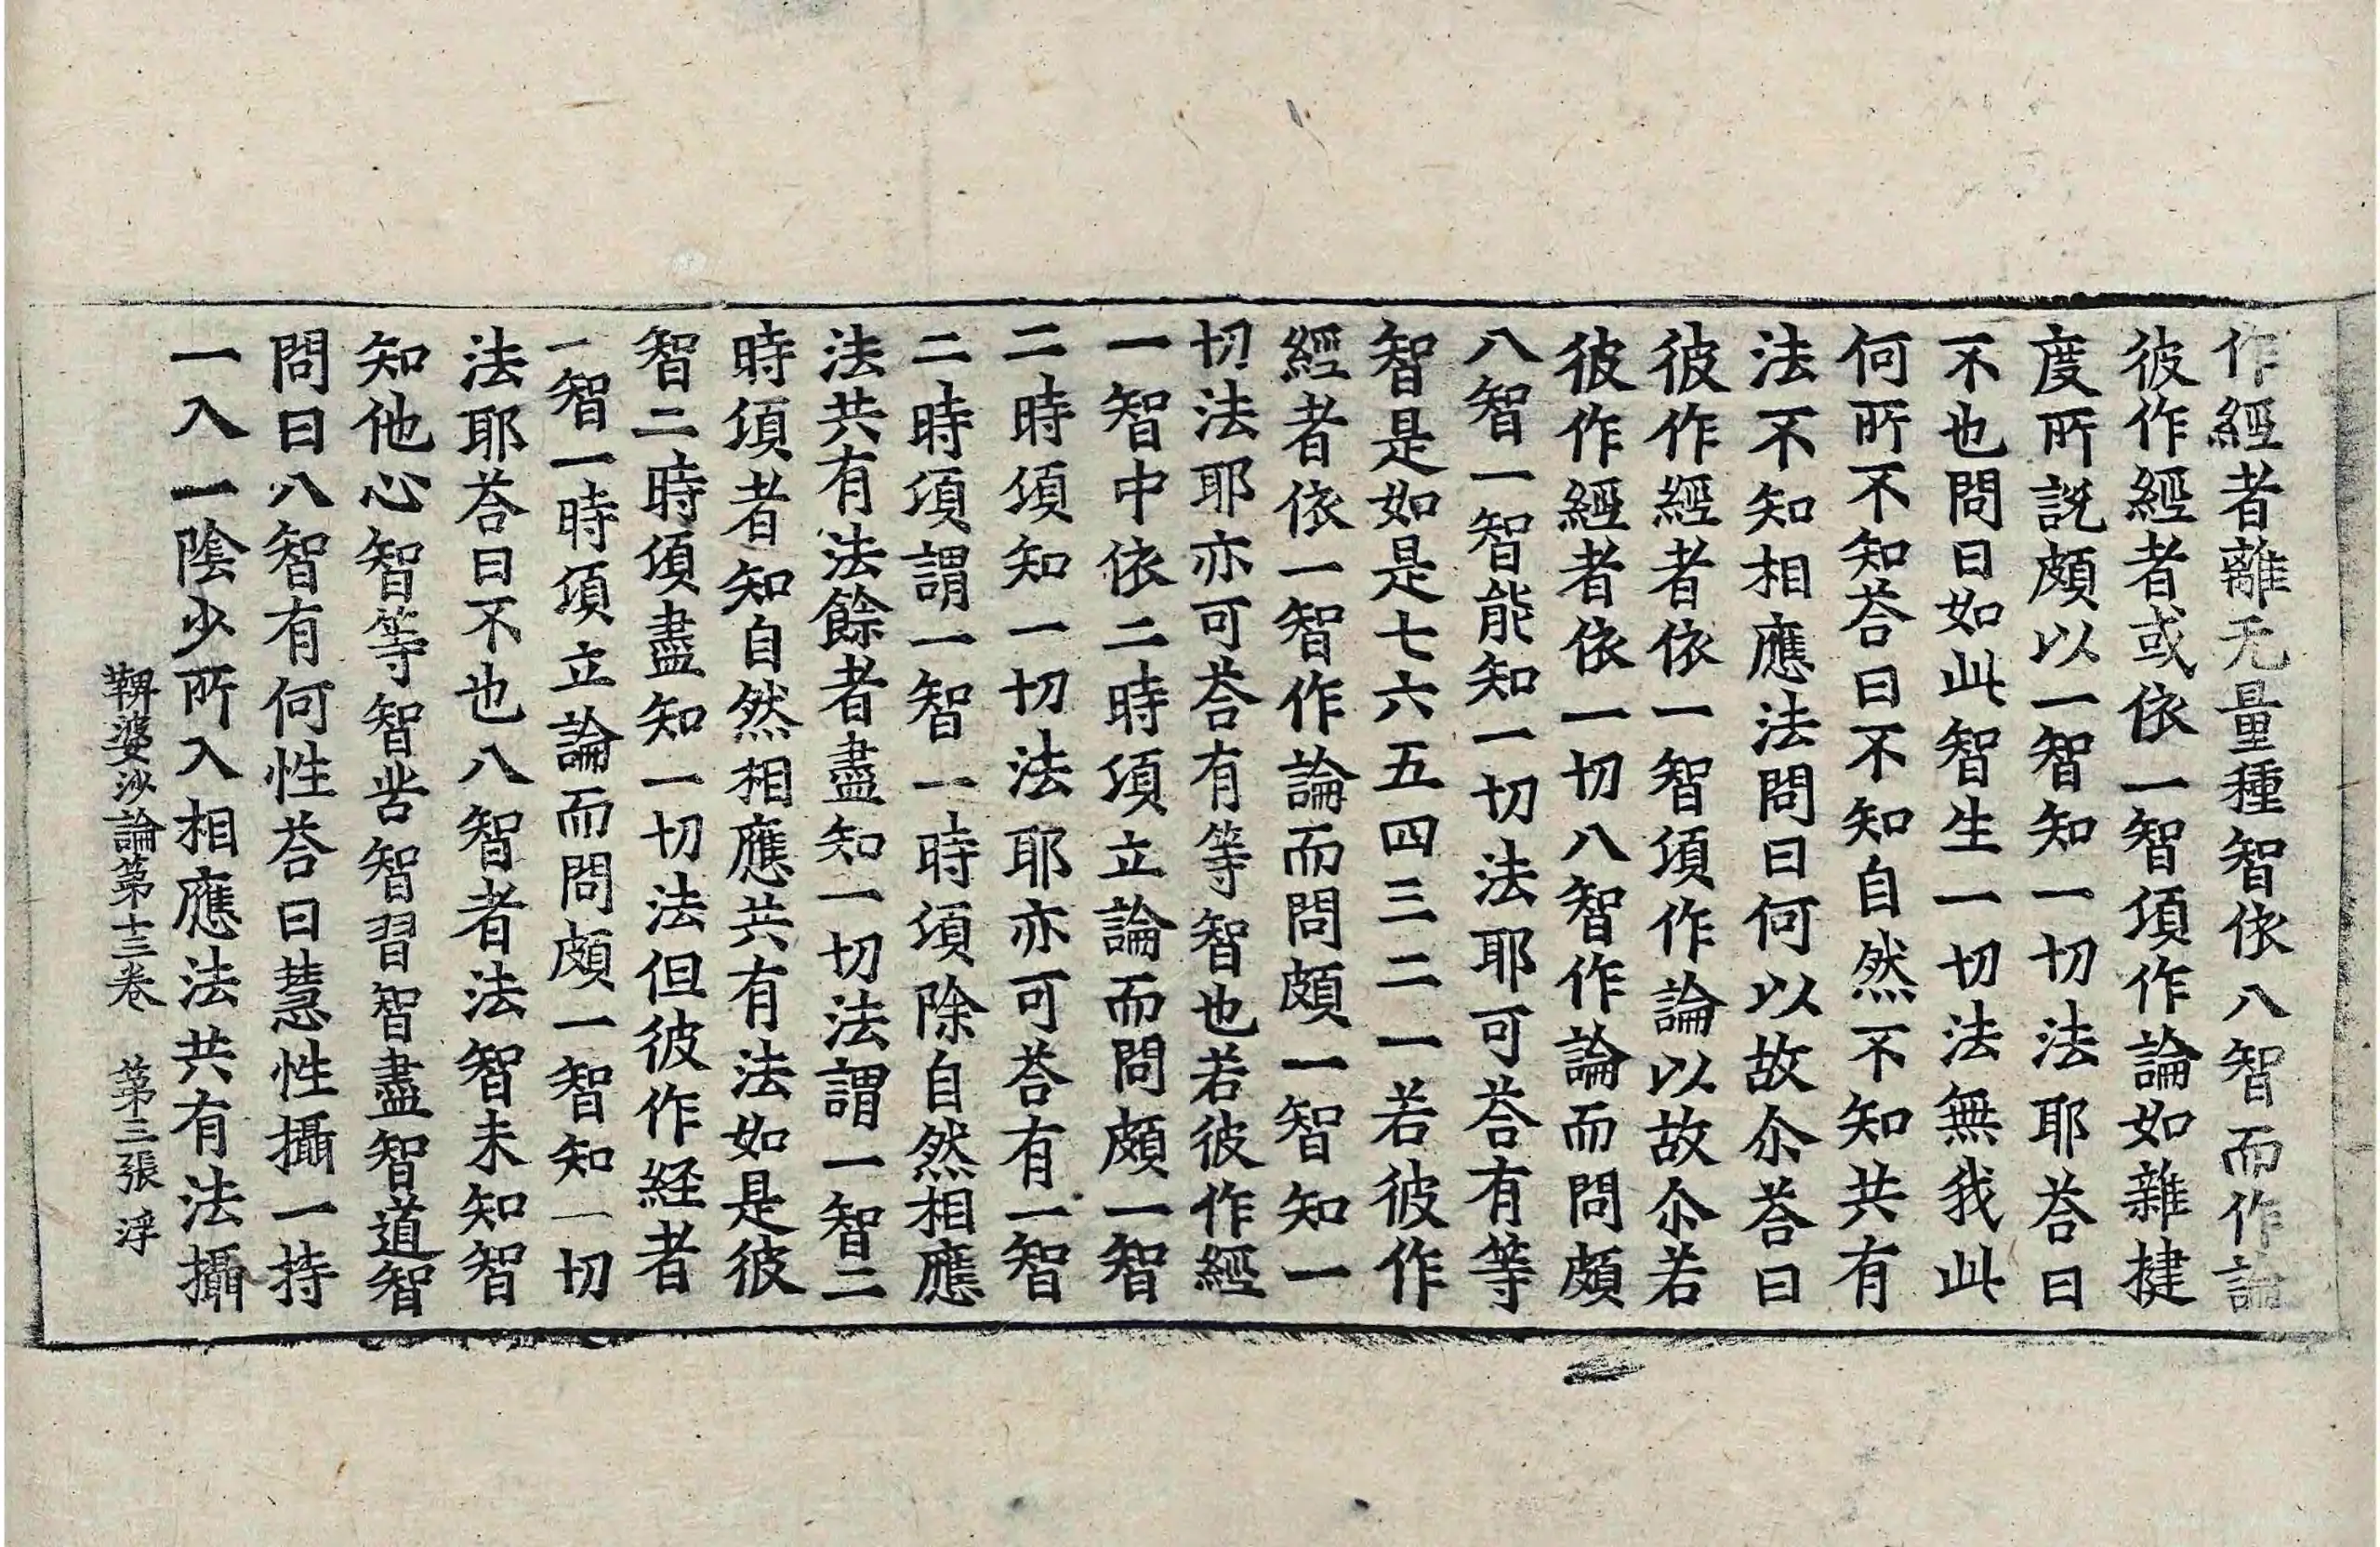 作經者離无量種智依八智而作論
彼作經者或依一智湏作論如雜揵
度所說頗以一智知一切法耶荅曰
不也問曰如此智生一切法無我此
何所不知荅曰不知自然不知共有
法不知相應法問曰何以故尒荅曰
彼作經者依一智湏作論以故尒若
彼作經者依一切八智作論而問頗
八智一智能知一切法耶可荅有等
智是如是七六五四三二一若彼作
經者依一智作論而問頗一智知一
切法耶亦可荅有等智也若彼作經
一智中依二時湏立論而問頗一智
二時湏知一切法耶亦可荅有一智
二時湏謂一智一時湏除自然相應
法共有法餘者盡知一切法謂一智二
時湏者知自然相應共有法如是彼
智二時湏盡知一切法但彼作経者
一智一時湏立論而問頗一智知一切
法耶荅曰不也八智者法智未知智
知他心智等智苦智習智盡智道智
問曰八智有何性荅曰慧性攝一持
一入一陰少所入相應法共有法攝
鞞婆沙論第十三卷　第三張　浮